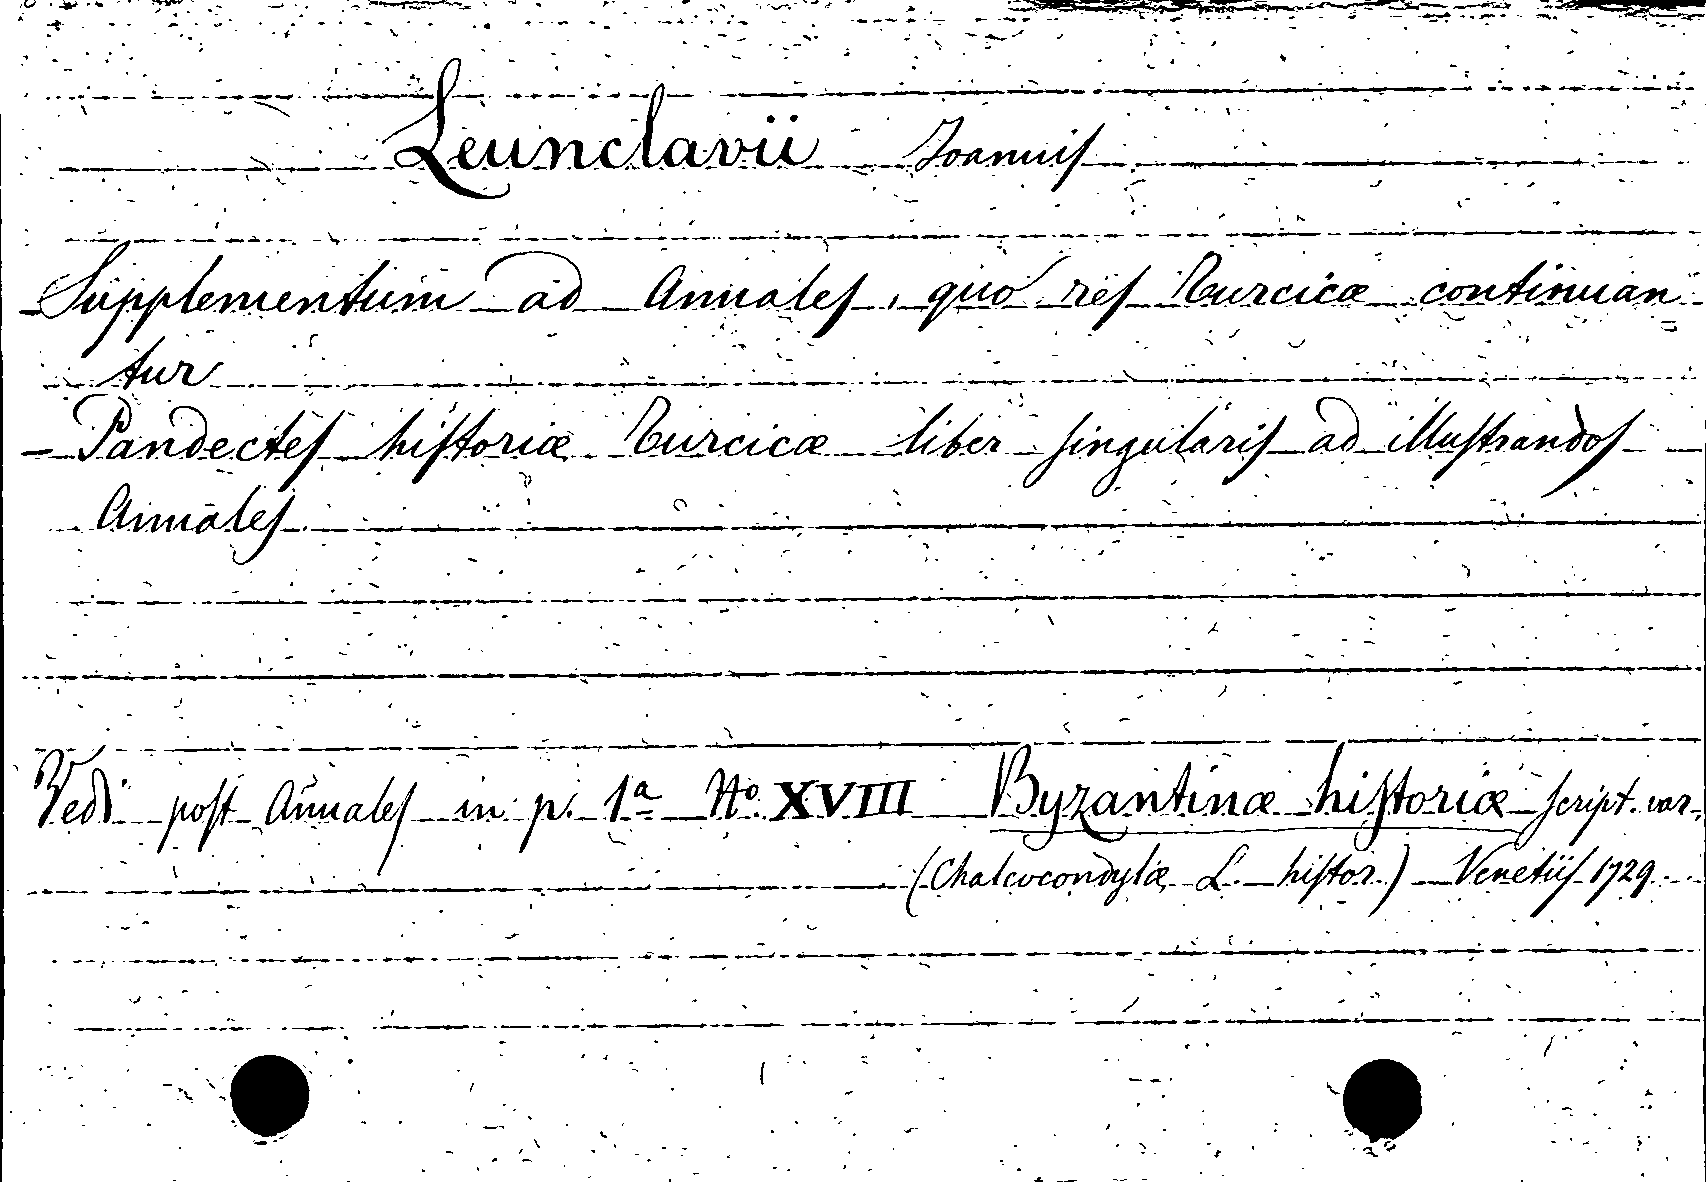 Leunclavii Joannis
- Supplementum ad Annales, quo res Turcicæ continuan
tur
- Pandectes historiæ Turcicæ liber singularis ad illustrandos
Annales
Vedi post Annales in p. 1ª Nº XVIII Byzantinæ historiæ script. var.
(Chalcocondylæ L. histor.) Venetiis 1729